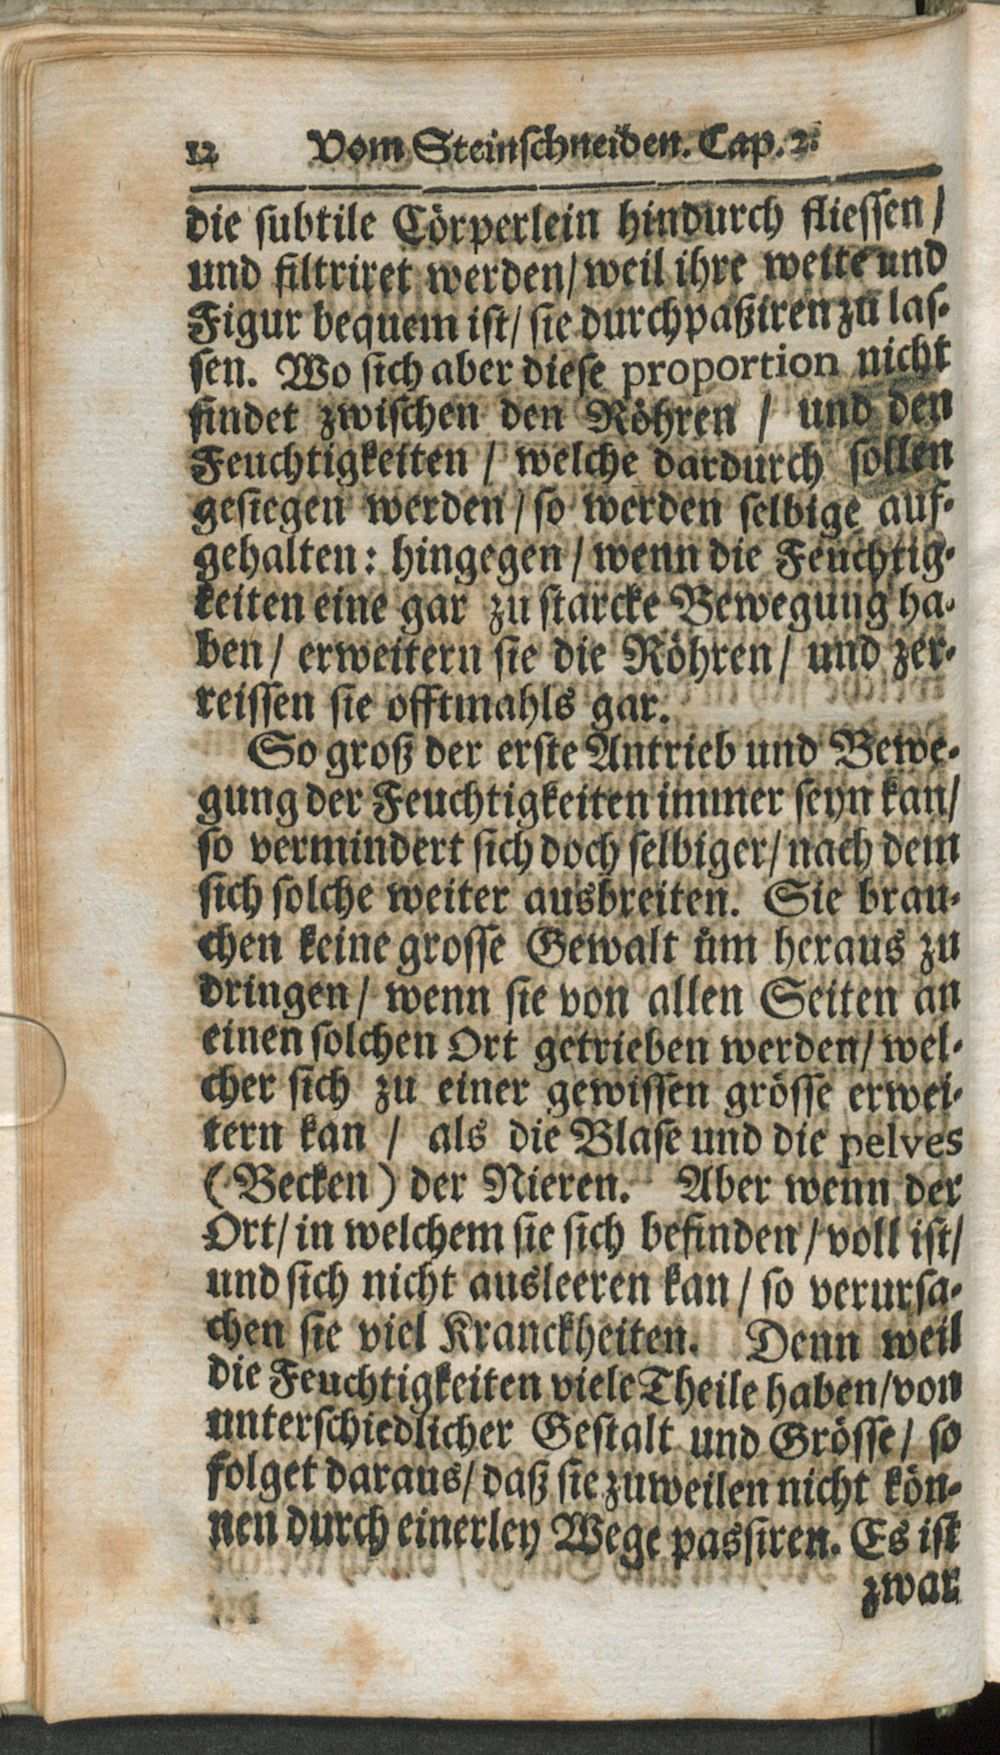 12 Vom Steinschneiden. Cap. 2.
die subtile Cörperlein hindurch fliessen /
und filtriret werden / weil ihre weite und
Figur bequem ist / sie durchpaßiren zu las-
sen. Wo sich aber diese proportion nicht
findet zwischen den Röhren / und den
Feuchtigkeiten / welche dardurch sollen
gesiegen werden / so werden selbige auf-
gehalten: hingegen / wenn die Feuchtig-
keiten eine gar zu starcke Bewegung ha-
ben / erweitern sie die Röhren / und zer-
reissen sie offtmahls gar.
So groß der erste Antrieb und Bewe-
gung der Feuchtigkeiten immer seyn kan /
so vermindert sich doch selbiger / nach dem
sich solche weiter ausbreiten. Sie brau-
chen keine grosse Gewalt üm heraus zu
dringen / wenn sie von allen Seiten an
einen solchen Ort getrieben werden / wel-
cher sich zu einer gewissen grösse erwei-
tern kan / als die Blase und die pelves
(Becken) der Nieren. Aber wenn der
Ort / in welchem sie sich befinden / voll ist /
und sich nicht ausleeren kan / so verursa-
chen sie viel Kranckheiten. Denn weil
die Feuchtigkeiten viele Theile haben / von
unterschiedlicher Gestalt und Grösse / so
folget daraus / daß sie zuweilen nicht kön-
nen durch einerley Wege passiren. Es ist
zwar